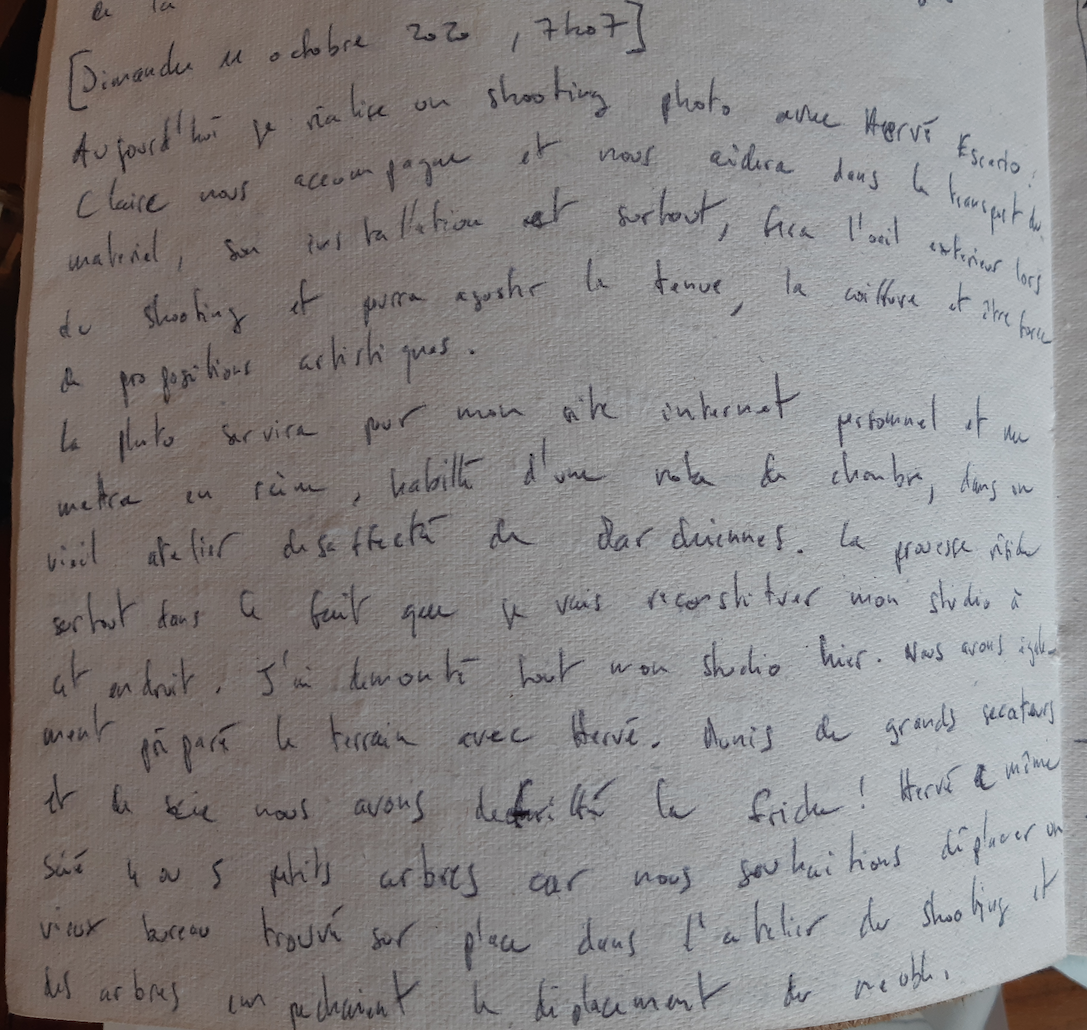 de la
[Dimanche 11 octobre 2020, 7h07]
Aujourd'hui je réalise un shooting photo avec Hervé Escario.
Claire nous accompagne et nous aidera dans le transport du
matériel, son installation et surtout, fera l'oeil extérieur lors
du shooting et pourra ajuster la tenue, la coiffure et être force
de propositions artistiques.
La photo servira pour mon site internet personnel et me
mettra en scène, habillé d'une robe de chambre, dans un
vieil atelier desaffecté de Darduennes. La prouesse réside
surtout dans le fait que je vais reconstituer mon studio à
cet endroit. J'ai demonté tout mon studio hier. Nous avons égale-
ment préparé le terrain avec Hervé. Munis de grands secateurs
et de scie nous avons defriché la friche ! Hervé a même
scié 4 ou 5 petits arbres car nous souhaitions déplacer un
vieux bureau trouvé sur place dans l'atelier du shooting et
des arbres empechaient le déplacement du meuble.